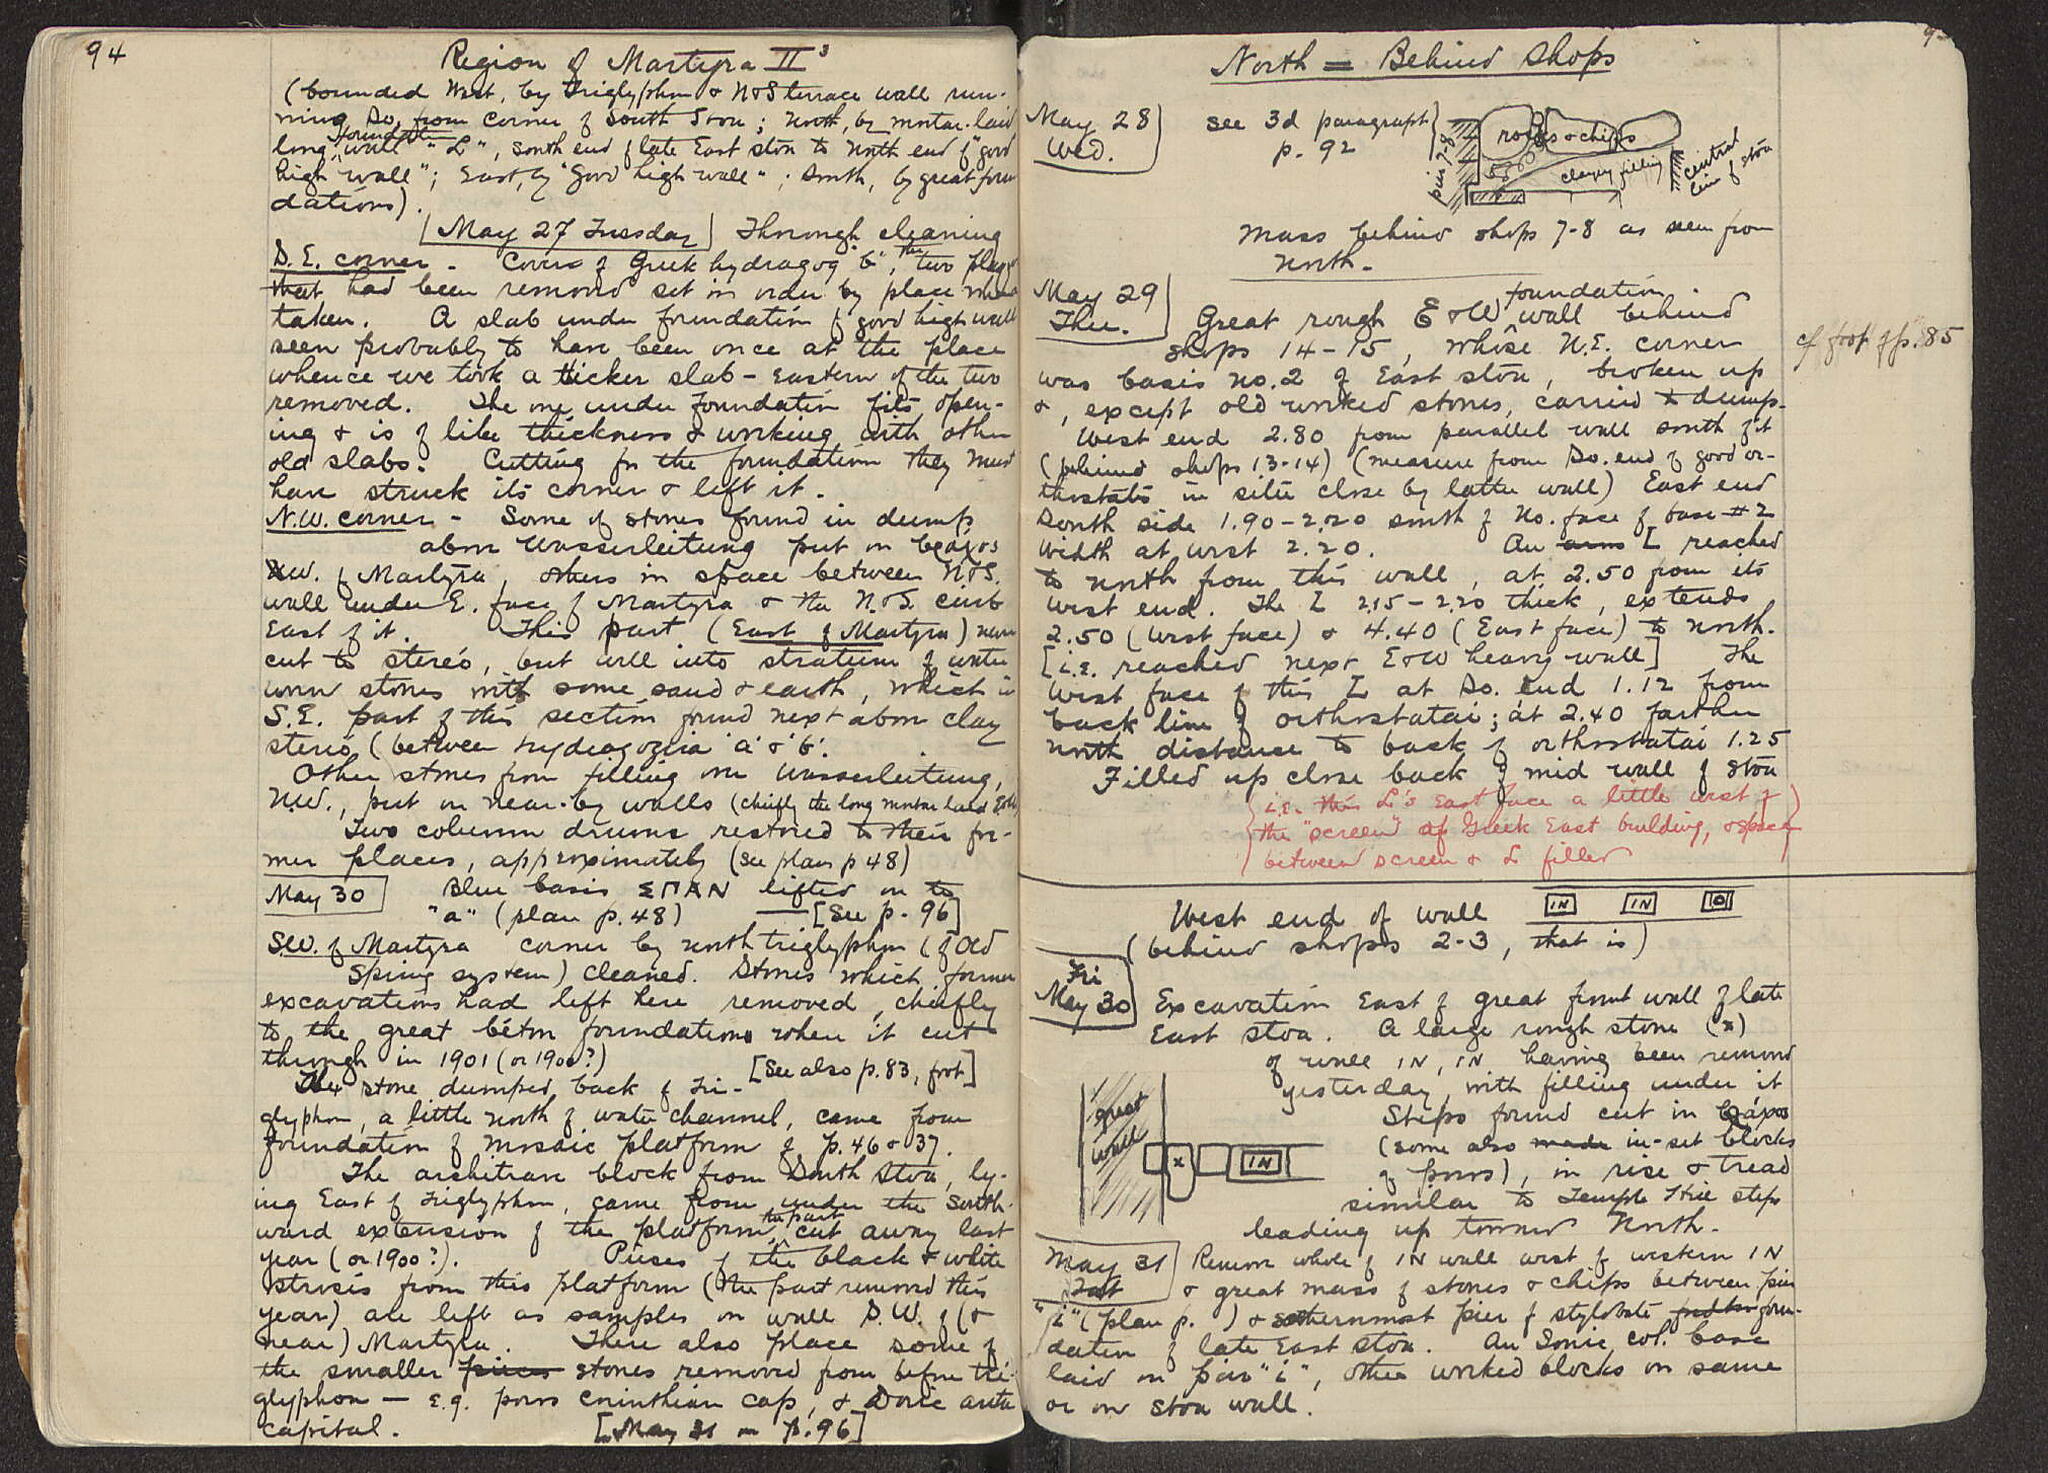 94
Region of Martyra II³
(bounded West, by Triglyphon & N&S terrace wall run-
ning So. from corner of South Stoa; North, by mortar-laid
long foundation wall "L", south end of late East stoa to north end of "good
high wall"; East, by "Good high wall"; South, by great foun
dations).
May 27 Tuesday Through cleaning
S.E. corner - Cover of Greek hydragog 'b', the two
that had been removed set in order by place where
taken. A slab under foundation of good high wall
seen probably to have been once at the place
whence we took a thicker slab - eastern of the two
removed. The one under foundation fits open-
ing & is of like thickness & working with other
old slabs. Cutting for the foundation they must
have struck its corner & left it.
N.W. corner - Some of stones found in dump
above Wasserleitung put on βράχος
N.W. of Martyra, others in space between N&S.
wall under E. face of Martyra & the N.&S. curb
East of it. This part (East of Martyra) now
cut to stereó, but well into stratum of water
worn stones with some sand & earth, which in
S.E. part of this section found next above clay
stereó (between hydragogeia 'a' & 'b'.
Other stones from filling over Wasserleitung,
N.W., put on near-by walls (chiefly the long mortar laid E&W)
Two column drums restored to their for-
mer places, approximately (see plan p 48)
May 30 Blue basis ΣΠΑΝ lifted on to
"a" (plan p. 48) — [See p. 96]
S.W. of Martyra corner by north triglyphon (of old
Spring system) cleaned. Stones which former
excavations had left here removed, chiefly
to the great béton foundations where it cut
through in 1901 (or 1900?) [See also p. 83, foot]
The stone dumped back of Tri-
glyphon, a little north of water channel, came from
foundation of mosaic platform of p. 46 & 37.
The architrave block from South Stoa, ly-
ing East of Triglyphon, came from under the South-
ward extension of the platform, the part cut away last
year (or 1900?). Pieces of the black & white
strosis from this platform (the part removed this
year) are left as samples on wall S.W. of (&
near) Martyra. There also place some of
the smaller pieces stones removed from before tri-
glyphon — e.g. poros Corinthian cap, & Doric anta
capital. [May 31 on p. 96]
North = Behind Shops
May 28
Wed.
see 3d paragraph
p. 92
pier 7-8
rocks & chips
clayey filling
central
line of stoa
Mass behind shops 7-8 as seen from
North.
May 29
Thu.
Great rough E&W foundation wall behind
shops 14-15, whose N.E. corner
cf foot of p. 85
was basis no. 2 of East stoa, broken up
&, except old worked stones, carried to dump.
West end 2.80 from parallel wall south of it
(behind shops 13-14) (measure from So. end of good or-
thostatis in situ close by latter wall) East end
South side 1.90-2.20 south of No. face of base #2
Width at west 2.20. An arm L reached
to north from this wall, at 2.50 from its
west end. The L 2.15-2.20 thick, extends
2.50 (west face) & 4.40 (East face) to north.
[i.e. reached next E&W heavy wall] The
West face of this L at So. end 1.12 from
back line of orthostatai; at 2.40 farther
north distance to back of orthostatai 1.25
Filled up close back of mid wall of stoa
i.e. this L's East face a little west of
the "screen" of Greek East building, & space
between screen & L filled
West end of wall IN IN
(behind shops 2-3, that is)
Fri
May 30
Excavation East of great front wall of late
East stoa. A large rough stone (x)
of wall IN, IN having been removed
yesterday, with filling under it
great
wall
x
IN
Steps found cut in βράχος
(some also made in-set blocks
of poros), in rise & tread
similar to Temple Hill steps
leading up toward North.
May 31
Sat
Remove whole of IN wall west of western IN
& great mass of stones & chips between pier
"i" (plan p. ) & southernmost pier of stylobate foun-
dation of late East stoa. An Ionic col. base
laid on pier "i", other worked blocks on same
or on stoa wall.